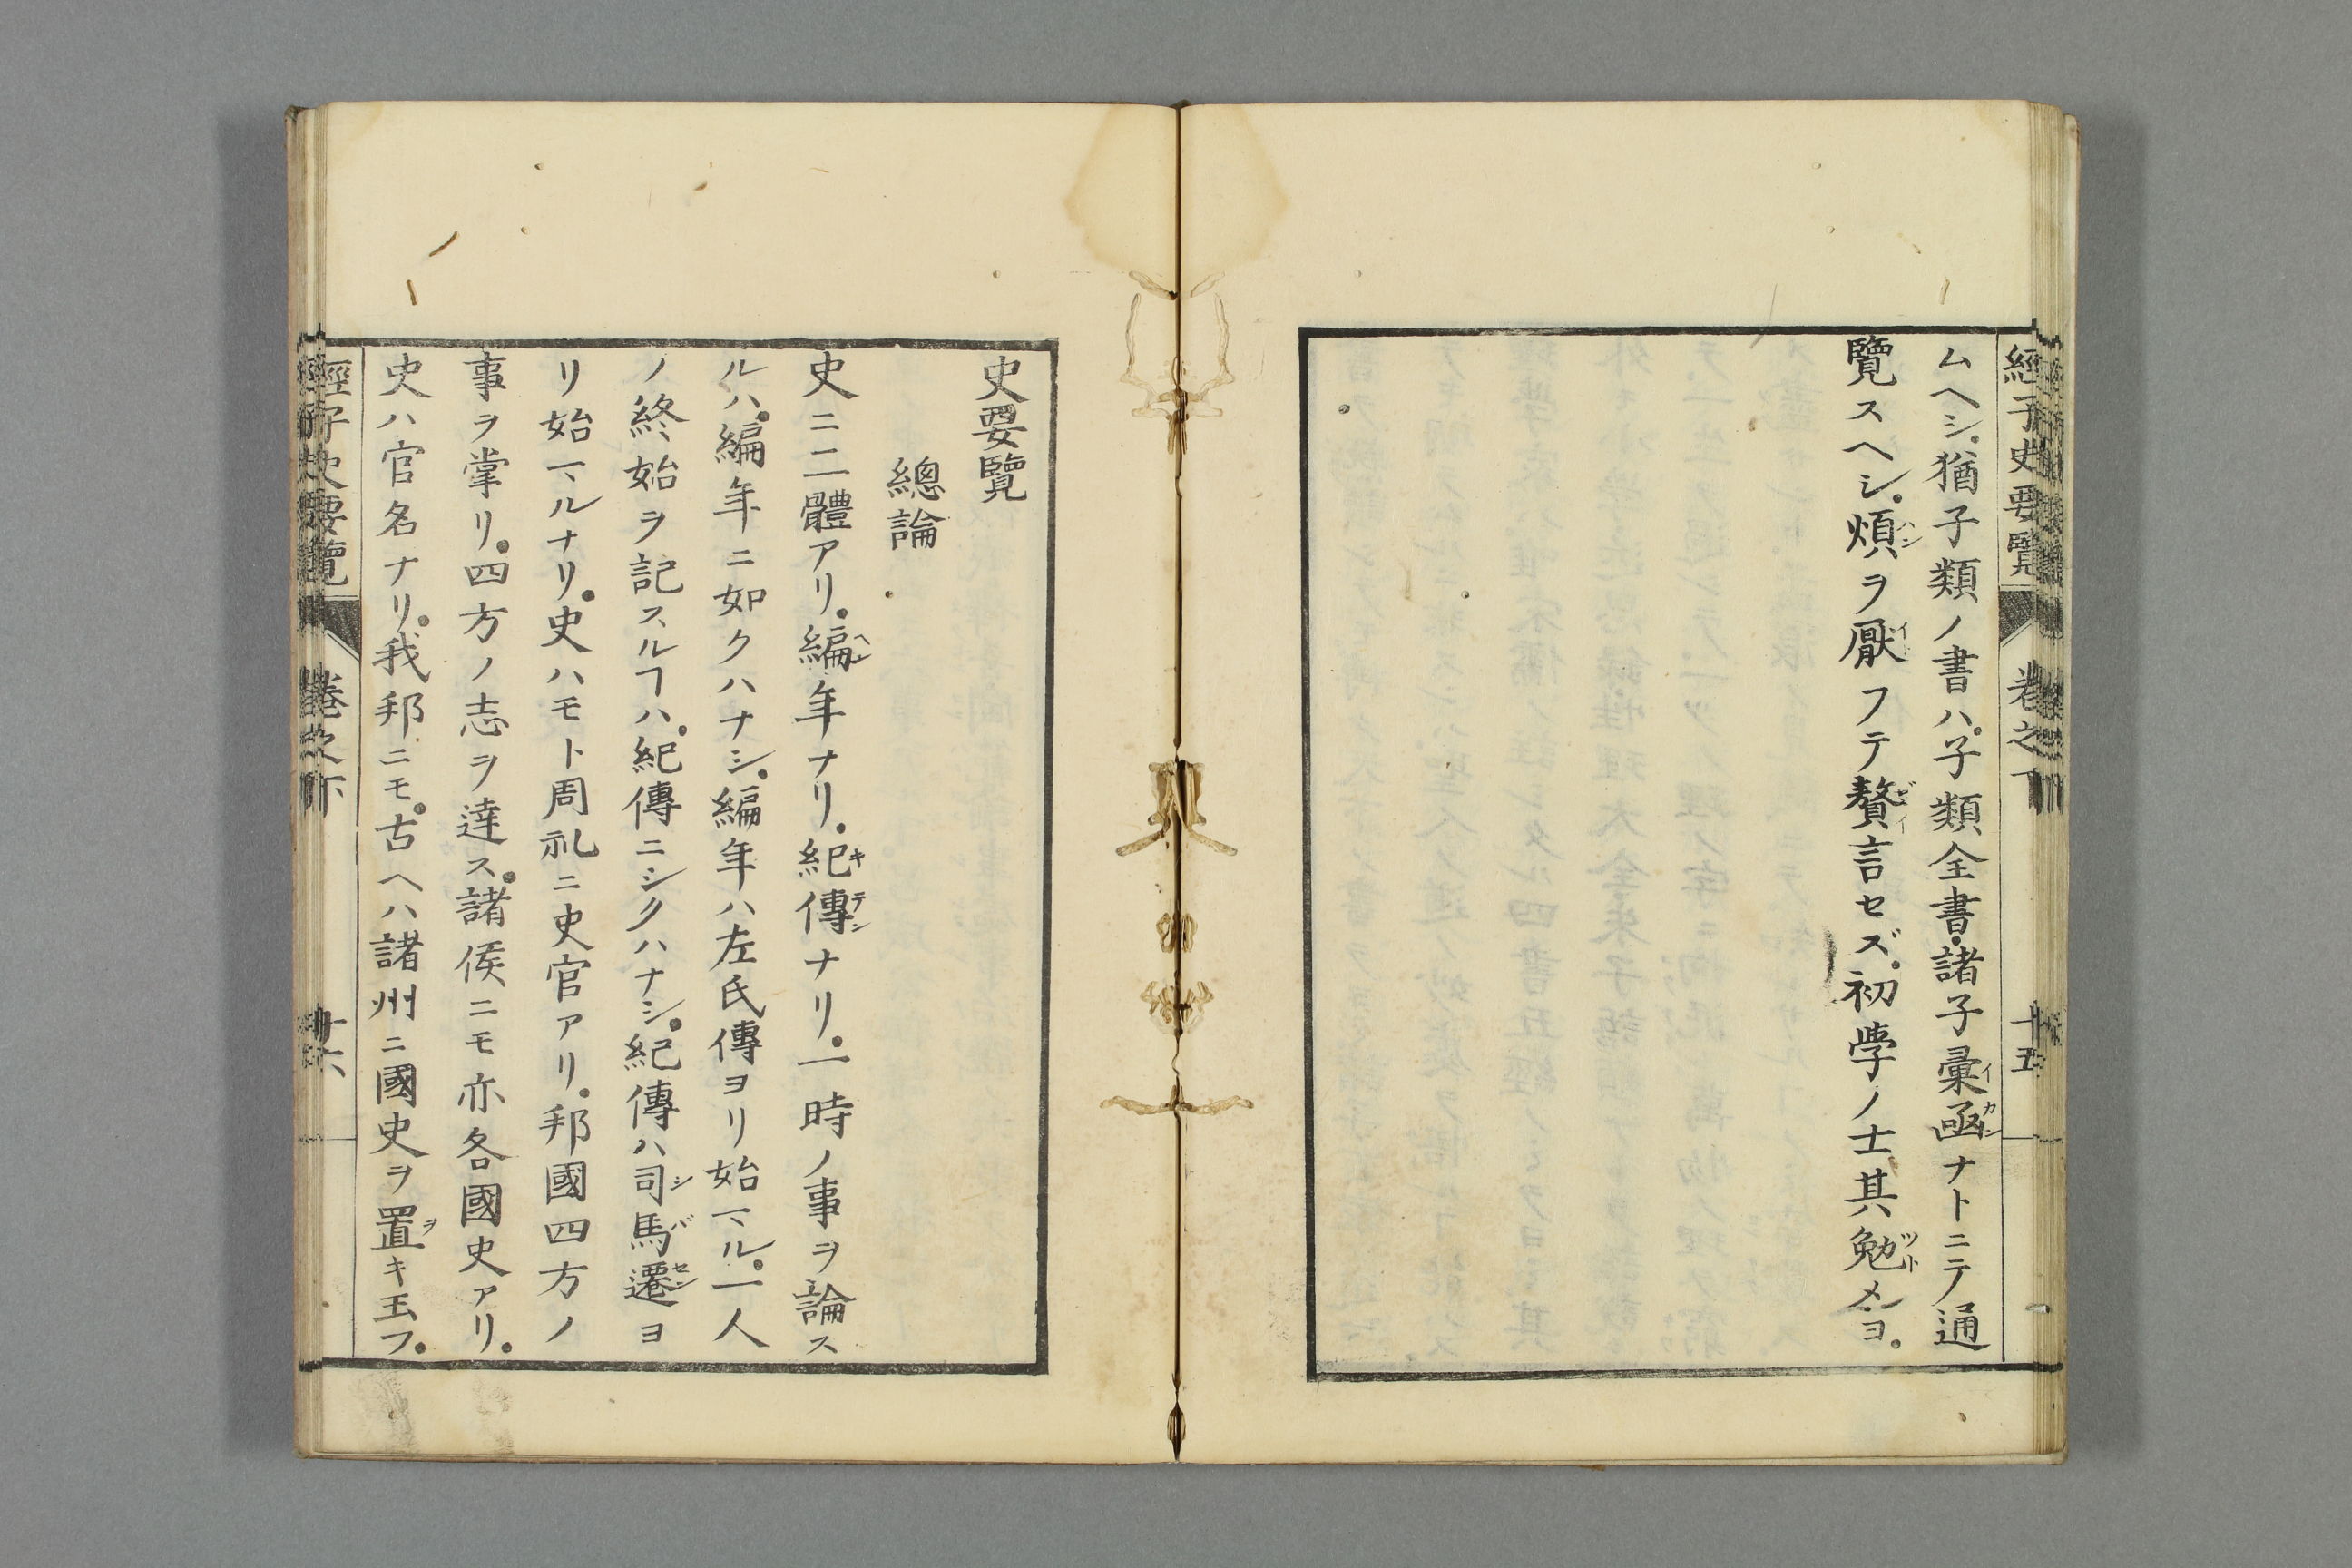 經子史要覽 卷之下 十五
ムヘシ。猶子類ノ書ハ。子類全書。諸子彙函ナトニテ通
覽スヘシ。煩ヲ厭フテ贅言セズ。初学ノ士其勉メヨ。
史要覽
總論
史ニ二體アリ。編年ナリ。紀傳ナリ。一時ノ事ヲ論ス
ルハ。編年ニ如クハナシ。編年ハ左氏傳ヨリ始マル。一人
ノ終始ヲ記スルヿハ。紀傳ニシクハナシ。紀傳ハ司馬遷ヨ
リ始マルナリ。史ハモト周礼ニ史官アリ。邦國四方ノ
事ヲ掌リ。四方ノ志ヲ達ス。諸侯ニモ亦各國史アリ。
史ハ官名ナリ。我邦ニモ。古ヘハ諸州ニ國史ヲ置キ玉フ。
經子史要覽 卷之下 十六